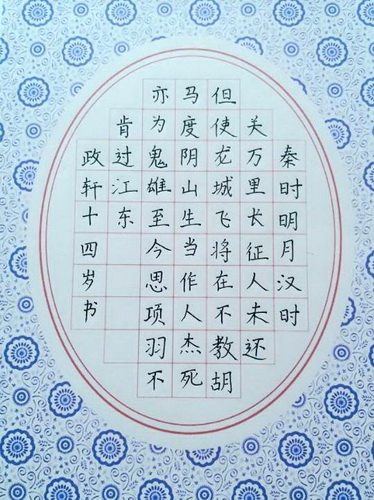 秦时明月汉时
关万里长征人未还
但使龙城飞将在不教胡
马度阴山生当作人杰死
亦为鬼雄至今思项羽不
肯过江东
政轩十四岁书